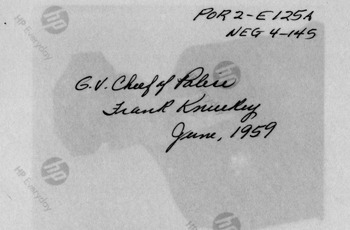 POR 2-E125A
NEG 4-145
G.V. Chief of Police
Frank
June, 1959
hp
HP Everyday
hp
HP Everyday
hp
HP Everyday
hp